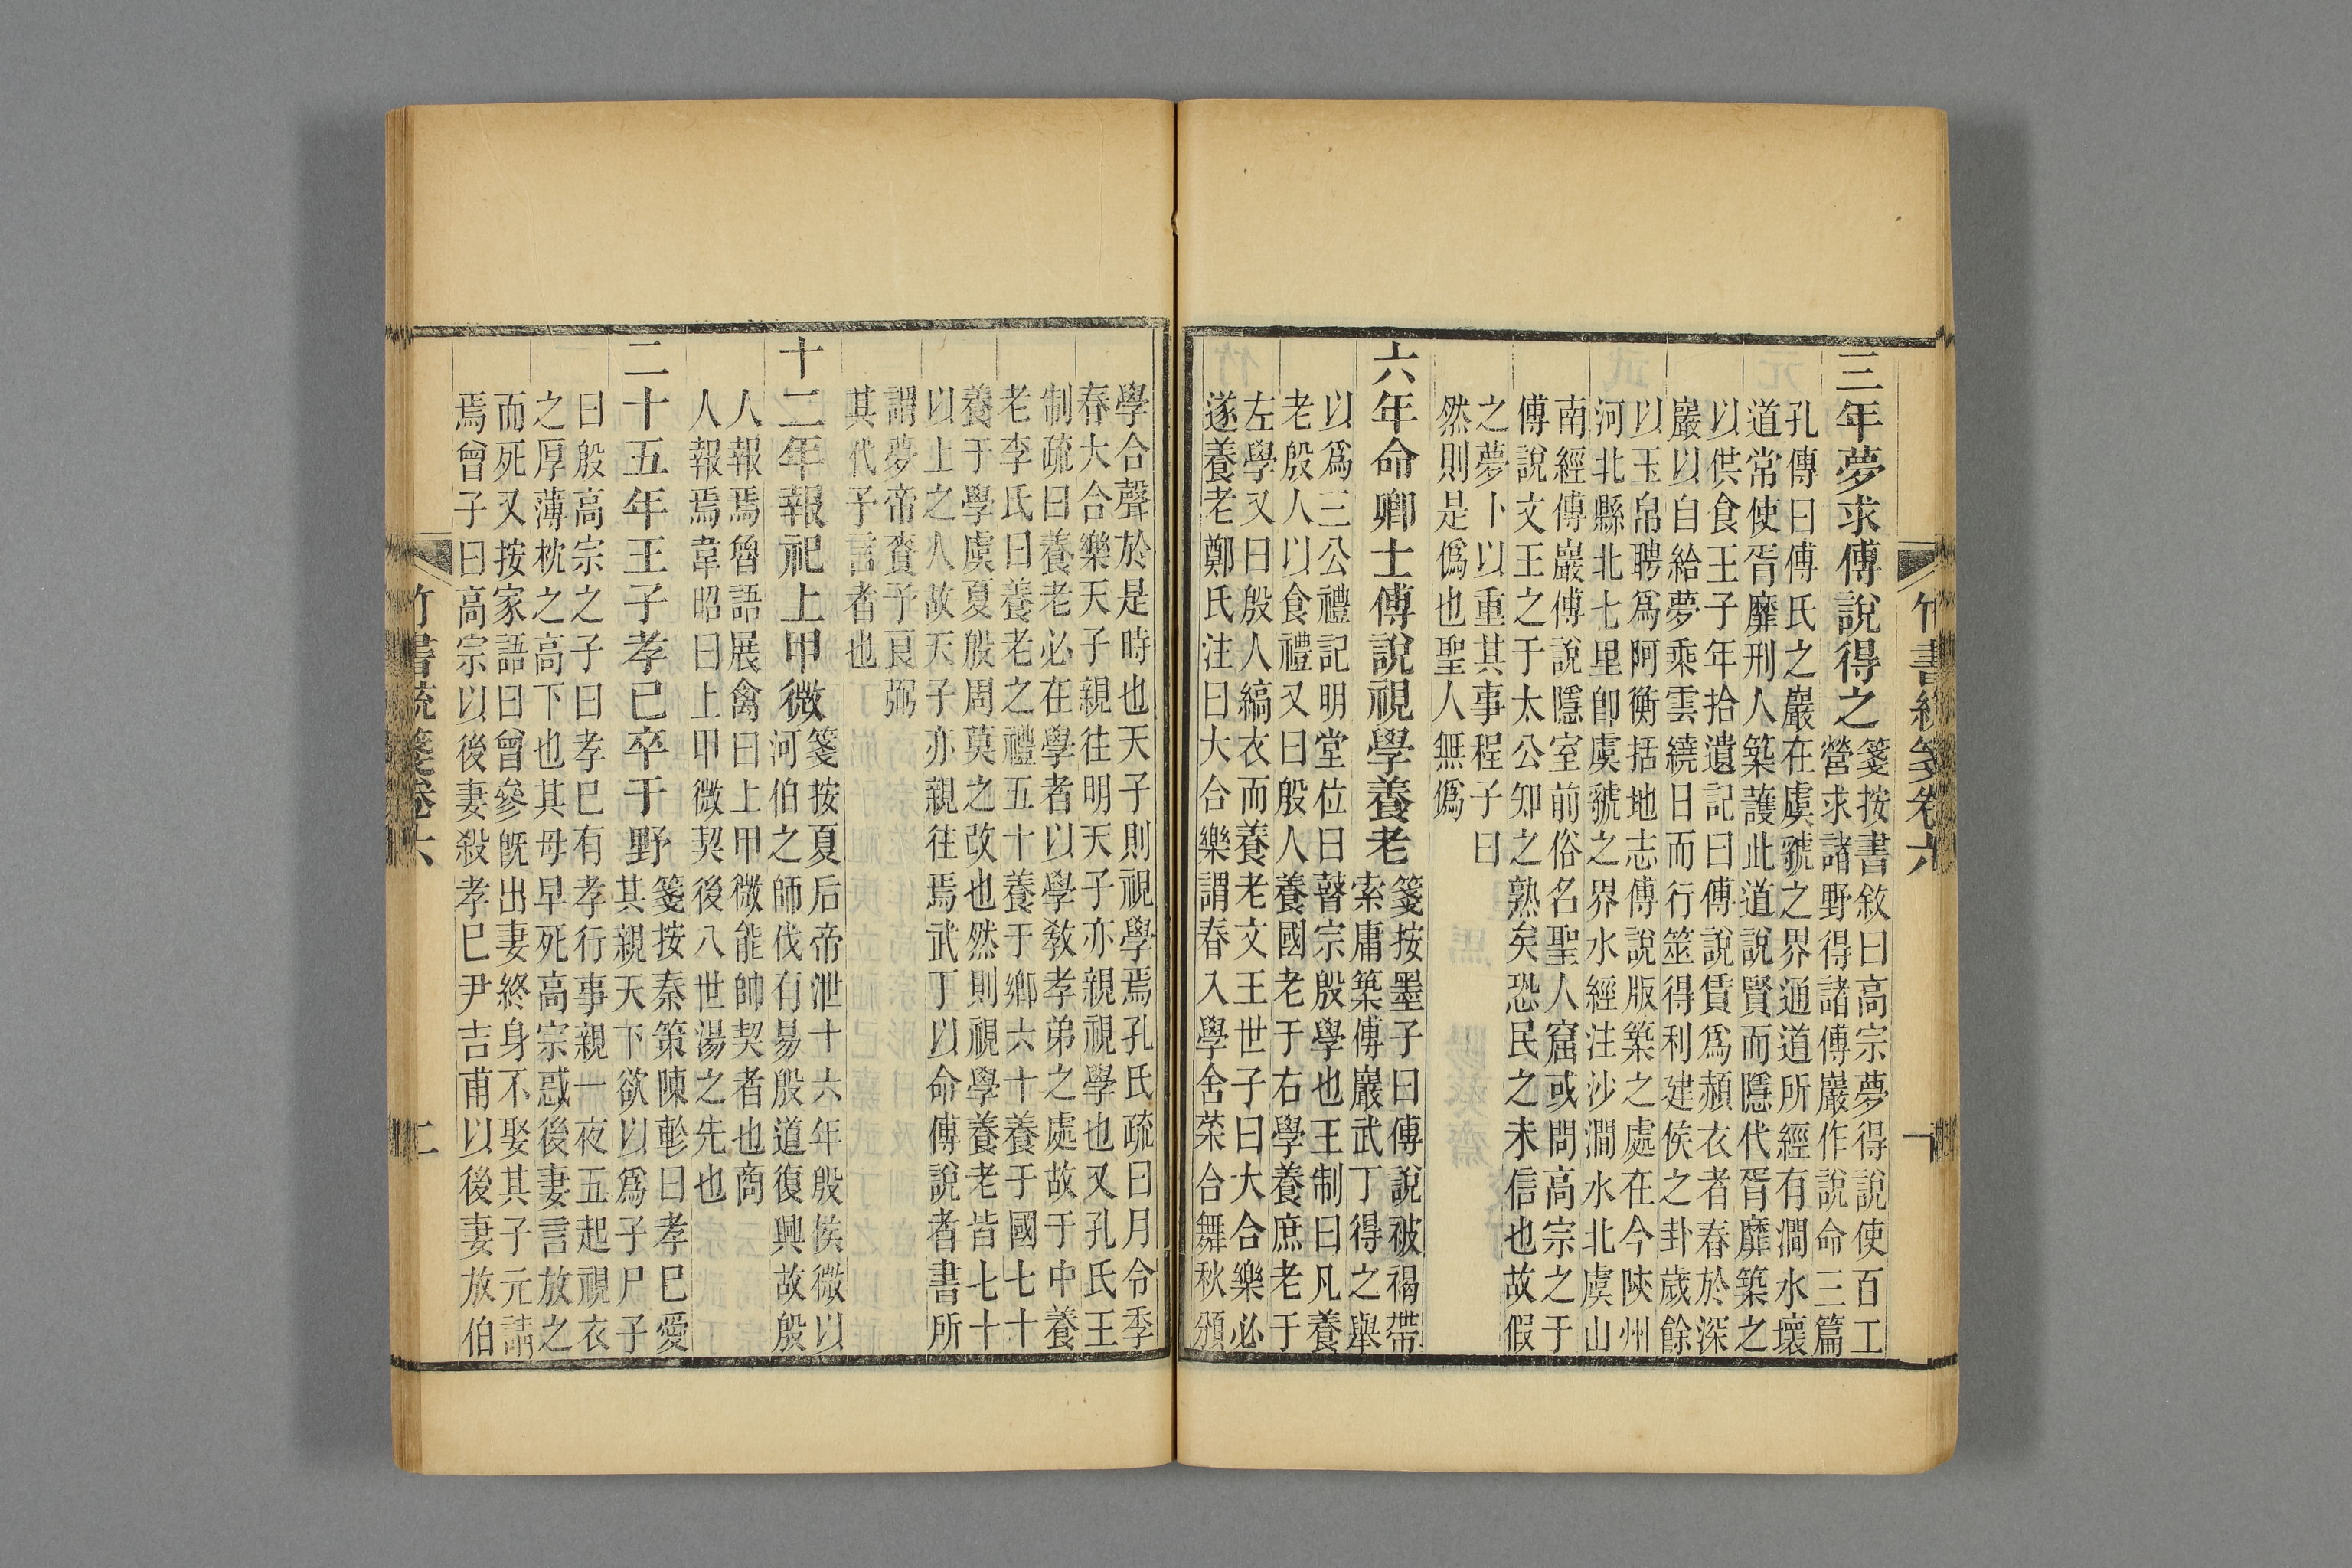 竹書統箋卷六
一
三年夢求傅說得之
箋按書敘曰高宗夢得說使百工
營求諸野得諸傅巖作說命三篇
孔傳曰傅氏之巖在虞虢之界通道所經有澗水壞
道常使胥靡刑人築護此道說賢而隱代胥靡築之
以供食王子年拾遺記曰傅說賃為赬衣者舂於深
巖以自給夢乘雲繞日而行筮得利建侯之卦歲餘
以玉帛聘爲阿衡括地志傅說版築之處在今陜州
河北縣北七里卽虞虢之界水經注沙澗水北虞山
南經傅巖傅說隱室前俗名聖人窟或問高宗之于
傅說文王之于太公知之熟矣恐民之未信也故假
之夢卜以重其事程子曰
然則是僞也聖人無僞
六年命卿士傅說視學養老
箋按墨子曰傅說被褐帶
索庸築傅巖武丁得之舉
以爲三公禮記明堂位曰瞽宗殷學也王制曰凡養
老殷人以食禮又曰殷人養國老于右學養庶老于
左學又曰殷人縞衣而養老文王世子曰大合樂必
遂養老鄭氏注曰大合樂謂春入學舍菜合舞秋頒
學合聲於是時也天子則視學焉孔氏疏曰月令季
春大合樂天子親往明天子亦親視學也又孔氏王
制疏曰養老必在學者以學敎孝弟之處故于中養
老李氏曰養老之禮五十養于鄉六十養于國七十
養于學虞夏殷周莫之改也然則視學養老皆七十
以上之人故天子亦親往焉武丁以命傅說者書所
謂夢帝賚予良弼
其代予言者也
十二年報祀上甲微
箋按夏后帝泄十六年殷侯微以
河伯之師伐有易殷道復興故殷
人報焉魯語展禽曰上甲微能帥契者也商
人報焉韋昭曰上甲微契後八世湯之先也
二十五年王子孝已卒于野
箋按秦策陳軫曰孝已愛
其親天下欲以爲子尸子
曰殷高宗之子曰孝已有孝行事親一夜五起視衣
之厚薄枕之高下也其母早死高宗惑後妻言放之
而死又按家語曰曾參旣出妻終身不娶其子元請
焉曾子曰高宗以後妻殺孝已尹吉甫以後妻放伯
竹書統箋卷六
二